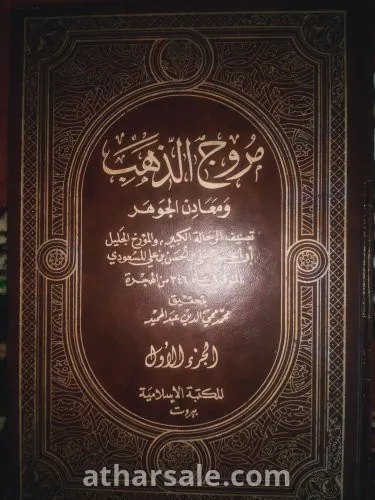 مروج الذهب
ومعادن الجوهر
تصنيف الرحالة الكبير والمؤرخ الجليل
أبي الحسن علي بن الحسين بن علي المسعودي
المتوفى سنة ٣٤٦ من الهجرة
تحقيق
محمد محيي الدين عبد الحميد
الجزء الأول
المكتبة الإسلامية
بيروت
atharsale.com